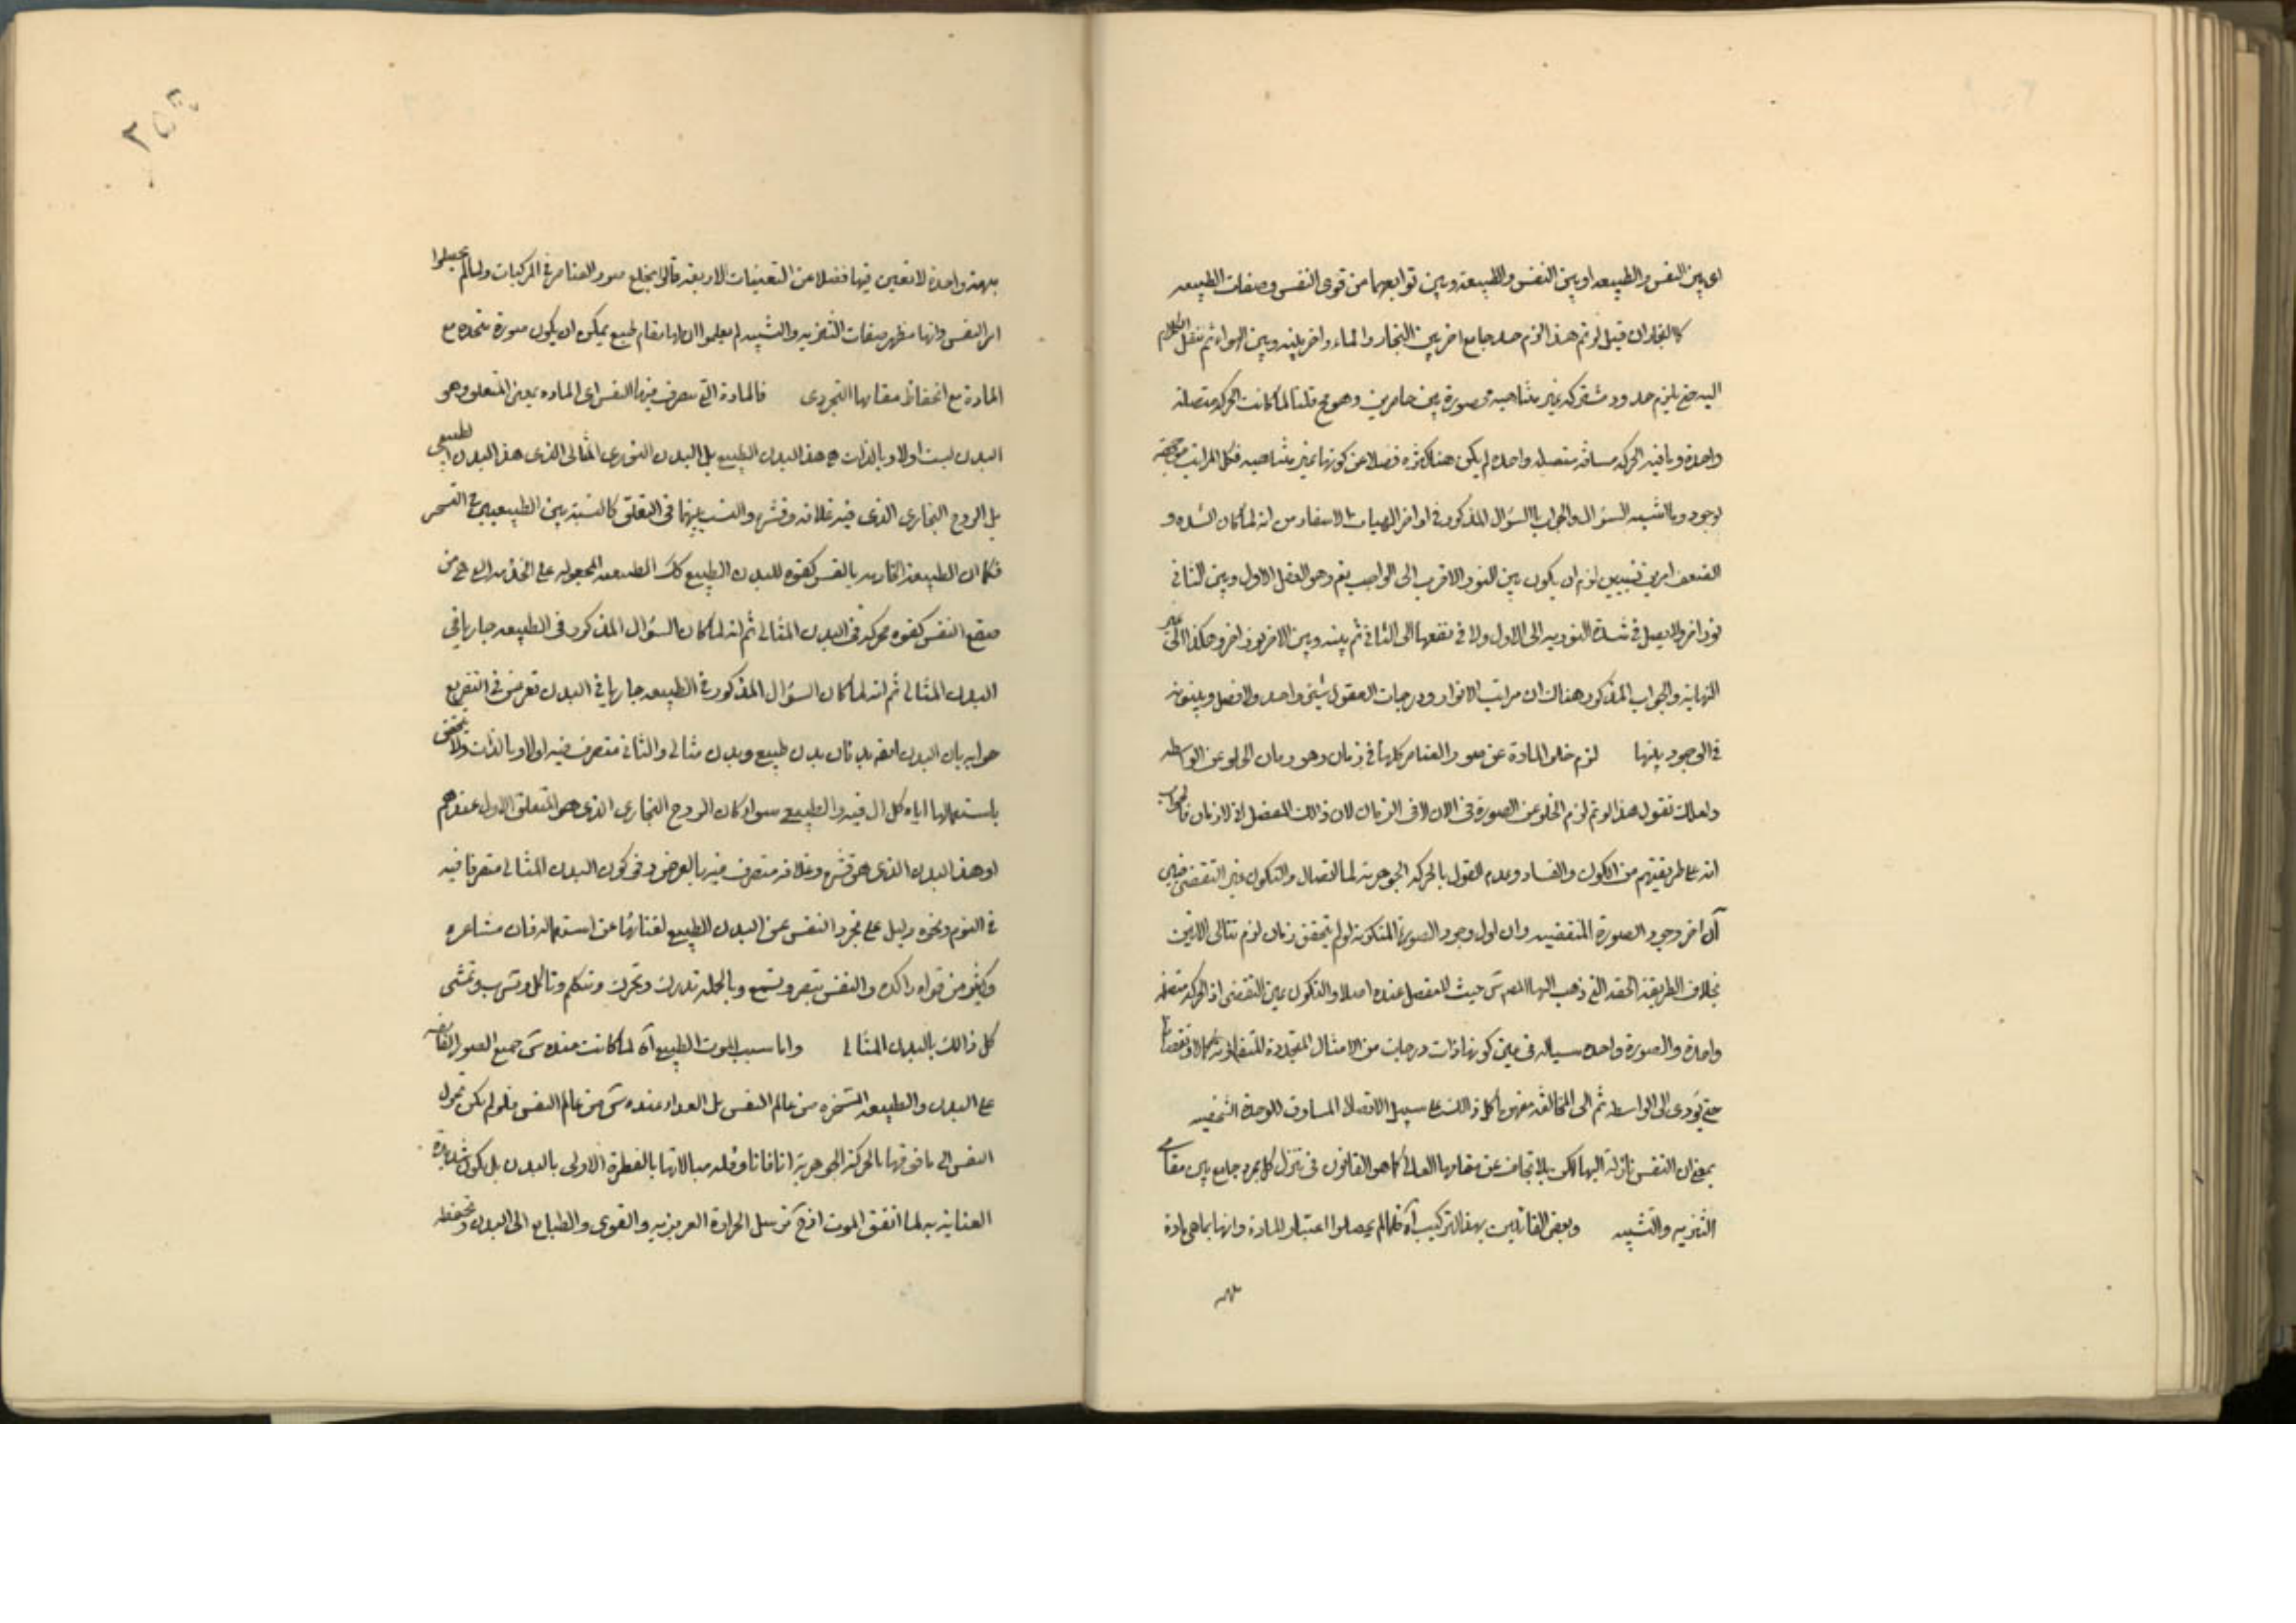 اى بين النفس والطبيعه او بين النفس والطبيعة وبين توابعهما من قوى النفس وصفات الطبيعه
كالبخار ان قيل لو تم هذا لزم حد جامع اخر بين البخار والماء واخر بينه وبين الهواء ثم ننقل الكلام
اليه حتى يلزم حدود مشتركه غير متناهيه محصورة بين حاصرين وهو مح قلنا لما كانت الحركه متصله
واحدة وما فيه الحركه مسافه متصله واحده لم يكن هناك كثره فضلا عن كونها غير متناهيه فكل المراتب موجوده
بوجود وما اشبه السؤال والجواب بالسؤال المذكور فى اواخر الهيات الاسفار من انه لما كان الشده و
الضعف امرين نسبيين لزم ان يكون بين النور الاقرب الى الواجب تعم وهو العقل الاول وبين الثانى
نور اخر لا يصل فى شدة النوريه الى الاول ولا فى نقصها الى الثانى ثم بينه وبين الاخر نور اخر وهكذا الى غير
النهاية والجواب المذكور هناك ان مراتب الانوار ودرجات العقول شيئ واحد ولا فصل وبينونه
فى الوجود بينها لزم خلو المادة عن صور العناصر كلها فى زمان وهو زمان الخلو عن الواسطه
ولعلك تقول هذا لو تم لزم الخلو عن الصورة فى الان لا فى الزمان لان ذلك المفصل ان لا زمان فالجواب
انه على طريقتهم من الكون والفساد وعدم القول بالحركه الجوهرية لما انفصال والتكون غير التقضى فبين
آن اخر وجود الصورة المنقضيه وان اول وجود الصورة المتكونة لو لم يتحقق زمان لزم تتالى الانين
بخلاف الطريقة الحقه التى ذهب اليها المص س حيث لا مفصل عنده اصلا والتكون عين التقضى اذ الحركه متصله
واحدة والصورة واحده سياله فى عين كونها ذات درجات من الامثال المتجددة المتفاوتة كمالا ونقصا
حتى يؤدى الى الواسطه ثم الى المخالفه مفهوما كل ذلك على سبيل الاتصال المساوق للوحدة الشخصيه
بمعنى ان النفس نازلة اليها لكن بلا تجاف عن مقامها العالى كما هو القانون فى تنزل كل مجرد جامع بين مقامى
التنزيه والتشبيه وبعض القائلين بهذا التركيب آه فلما لم يحصلوا اعتبار المادة وانها بما هى مادة
مبهمة واحدة لا تعين فيها فضلا عن التعينات الاربعة قالوا بخلع صور العناصر فى المركبات ولما لم يحصلوا
امر النفس وانها مظهر صفات التنزيه والتشبيه لم يعلموا ان لها مقام طبع يمكن ان يكون صورة متحده مع
المادة مع انحفاظ مقامها التجردى فالمادة التى تتصرف فيها النفس اى المادة بمعنى المتعلق وهو
البدن ليست اولا وبالذات هى هذا البدن الطبيعى بل البدن النورى المثالى الذى هذا البدن الطبيعى
بل الروح البخارى الذى فيه غلافه وقشره والنسب بينهما فى التعلق كالنسبة بين الطبيعتين فى التسخر
فكما ان الطبيعة المقارنه بالقسر كقوه للبدن الطبيعى كك الطبيعه المجعوله على الخدمه الت هى من
صقع النفس كقوه محركه فى البدن المثالى ثم انه لما كان السؤال المذكور فى الطبيعه جاريا فى
البدن المثالى ثم انه لما كان السؤال المذكور فى الطبيعه جاريا فى البدن تعرض فى التفريع
جوابه بان البدن ايضا بدنان بدن طبيعى وبدن مثالى والثانى متصرف فيه اولا وبالذات ولا يتحقق
باستعمالها اياه كلال فيه والطبيعى سواء كان الروح البخارى الذى هو المتعلق الاول عندهم
او هذا البدن الذى هو قشره وغلافه متصرف فيه بالعرض وفى كون البدن المثالى متصرفا فيه
فى النوم ونحوه دليل على تجرد النفس عن البدن الطبيعى لغنائها عن استعماله فان مشاعره
وكثير من قواه راكده والنفس تبصر وتسمع وبالجمله تدرك وتحرك وتتكلم وتاكل وتشرب وتمشى
كل ذلك بالبدن المثالى واما سبب الموت الطبيعى آه لما كانت عنده س جميع الصور الفائضه
على البدن والطبيعه المسخره من عالم النفس بل المعداد عنده س من عالم النفس فلو لم يكن تحول
النفس الى ما فوقها بالحركة الجوهرية انا فانا وقله مبالاتها بالفطرة الاولى بالبدن بل يكون شديدة
العناية به لما اتفق الموت اذ ح ترسل الحرارة الغريزيه والقوى والطبايع الى البدن وتحفظه